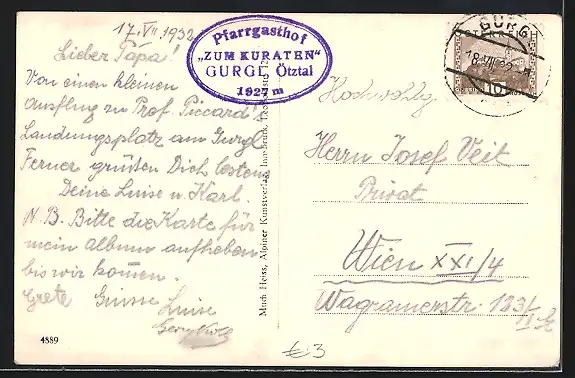 17. VII 1932
Lieber Papa!
Von einen kleinen
Ausflug zu Prof. Piccard's
Landungsplatz am Gurgl
Ferner grüßen Dich bestens
Deine Luise u. Karl.
N.B. Bitte die Karte für
mein Album aufheben
bis wir komen.
Grete Grüsse Luise
4889
Pfarrgasthof
„ZUM KURATEN“
GURGL Ötztal
1927 m
Much Heiss, Alpiner Kunstverlag, Innsbruck,
GURGL
ÖSTERREICH
10
Herrn Josef Veit
Privat
Wien XXI/4
Wagramerstr. 133/
€ 3